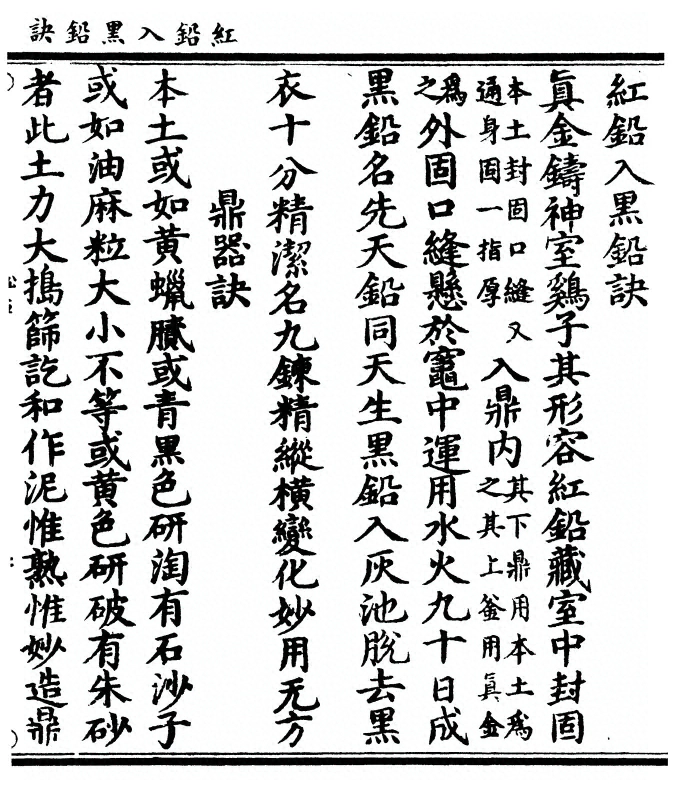 紅鉛入黑鉛訣
紅鉛入黑鉛訣
眞金鑄神室鷄子其形容紅鉛藏室中封固
本土封固口縫又通身固一指厚入鼎内其下鼎用本土爲之其上釜用眞金
爲之外固口縫懸於竈中運用水火九十日成
黑鉛名先天鉛同天生黑鉛入灰池脫去黑
衣十分精潔名九鍊精縱橫變化妙用无方
鼎器訣
本土或如黄蠟膩或青黑色研淘有石沙子
或如油麻粒大小不等或黄色研破有朱砂
者此土力大搗篩訖和作泥惟熟惟妙造鼎